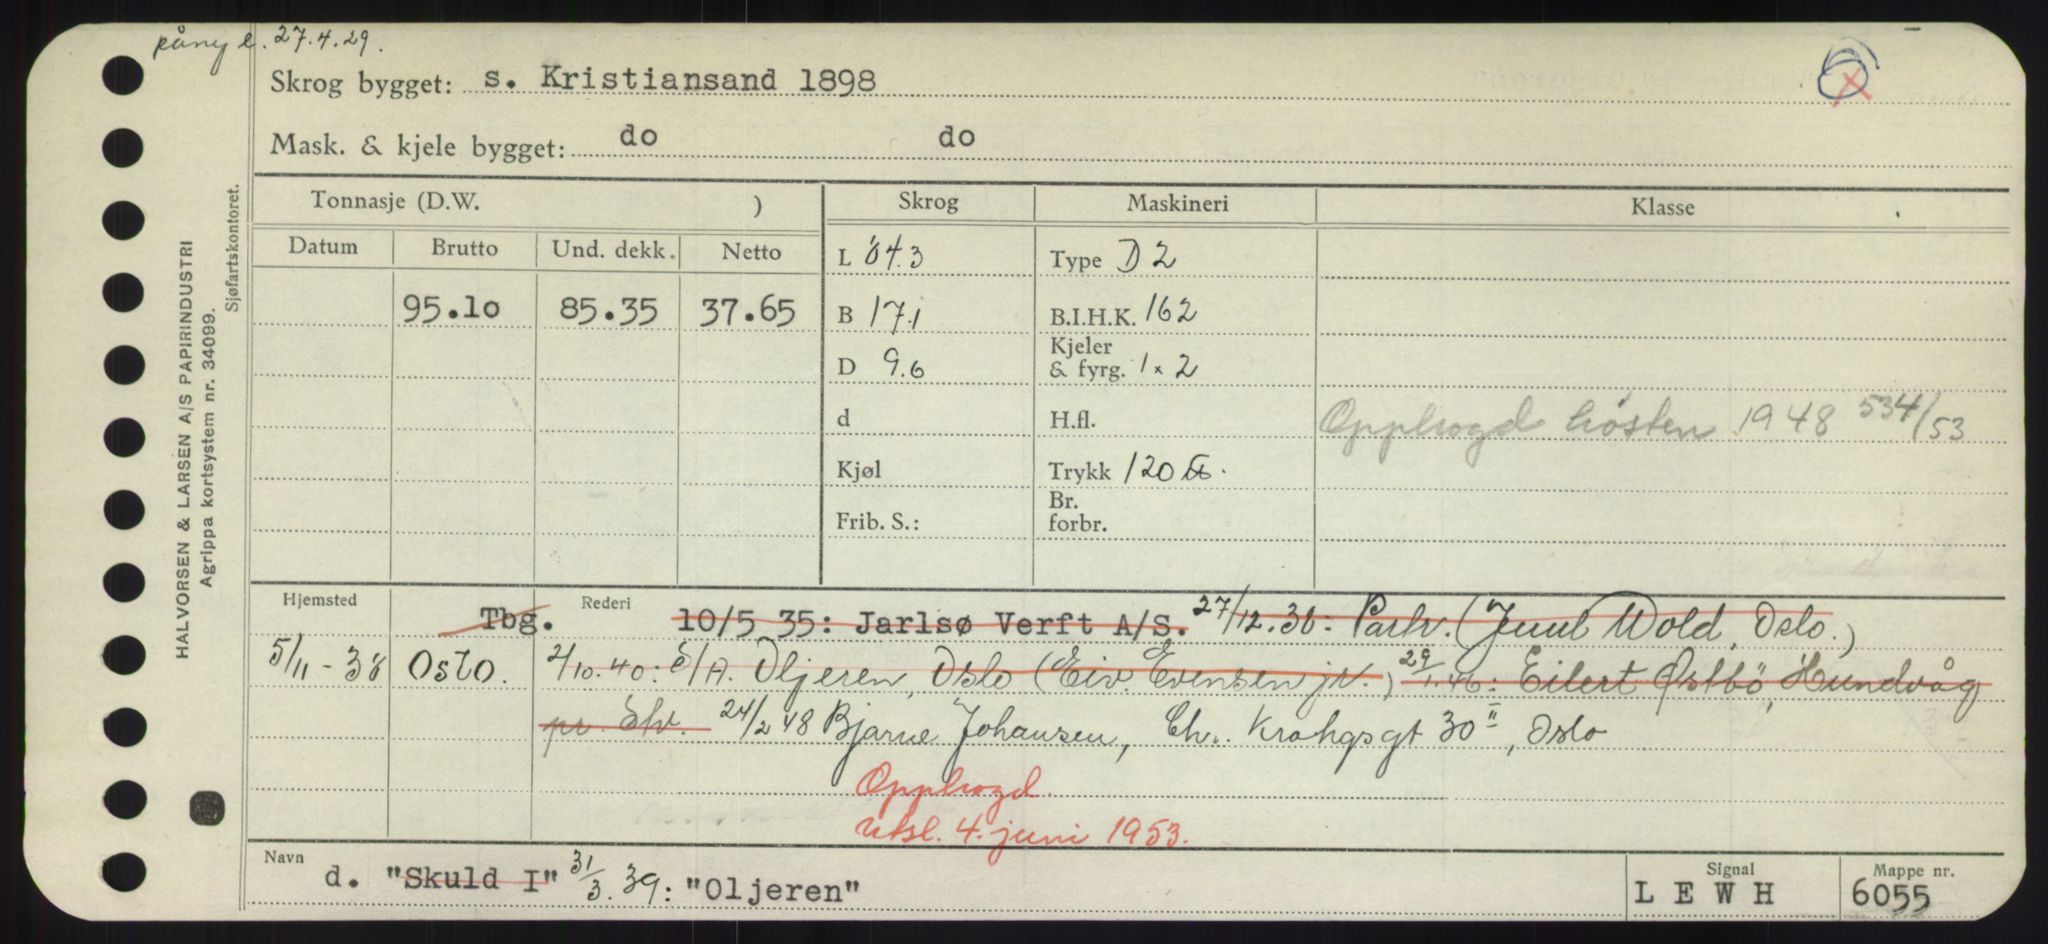 påny e. 27.4.29.
Skrog bygget: s. Kristiansand 1898
Mask. & kjele bygget: do do
HALVORSEN & LARSEN A/S PAPIRINDUSTRI
Agrippa kortsystem nr. 34099.
Sjøfartskontoret.
Tonnasje (D.W. ) Skrog Maskineri Klasse
Datum Brutto Und. dekk. Netto
L 84.3 Type D 2
95.10 85.35 37.65 B 17.1 B.I.H.K. 162
D 9.6 Kjeler & fyrg. 1 x 2
d H.fl. Opphogd hösten 1948 534/53
Kjøl Trykk 120 lb.
Frib. S.: Br. forbr.
Hjemsted Tbg. Rederi 10/5 35: Jarlsø Verft A/S. 27/12.36: Parh. (Juul Wold, Oslo.)
5/11 - 38 Oslo. 2/10.40: S/A. Oljeren, Oslo (Eiv. Evensen jr.) 29/1.46: Eilert Østbö, Hundvåg
pr. Stv. 24/2 48 Bjarne Johansen, Chr. Krohgsgt 30 II, Oslo
Opphogd.
utsl. 4. juni 1953.
Navn d. "Skuld I" 31/3.39: "Oljeren" Signal LEWH Mappe nr. 6055